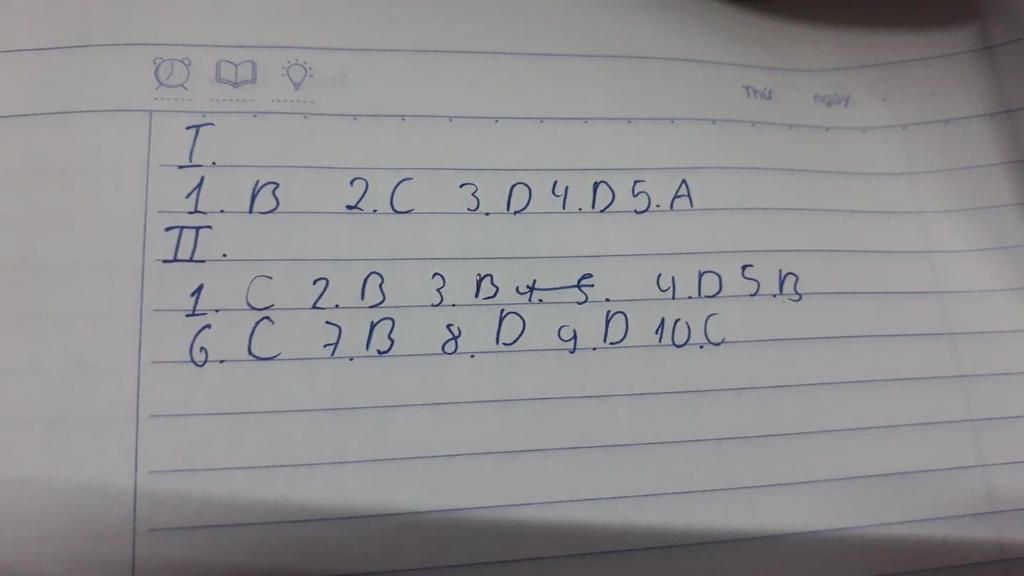 Thứ ngày
I.
1. B 2. C 3. D 4. D 5. A
II.
1. C 2. B 3. B 4. 5. 4. D 5. B
6. C 7. B 8. D 9. D 10. C